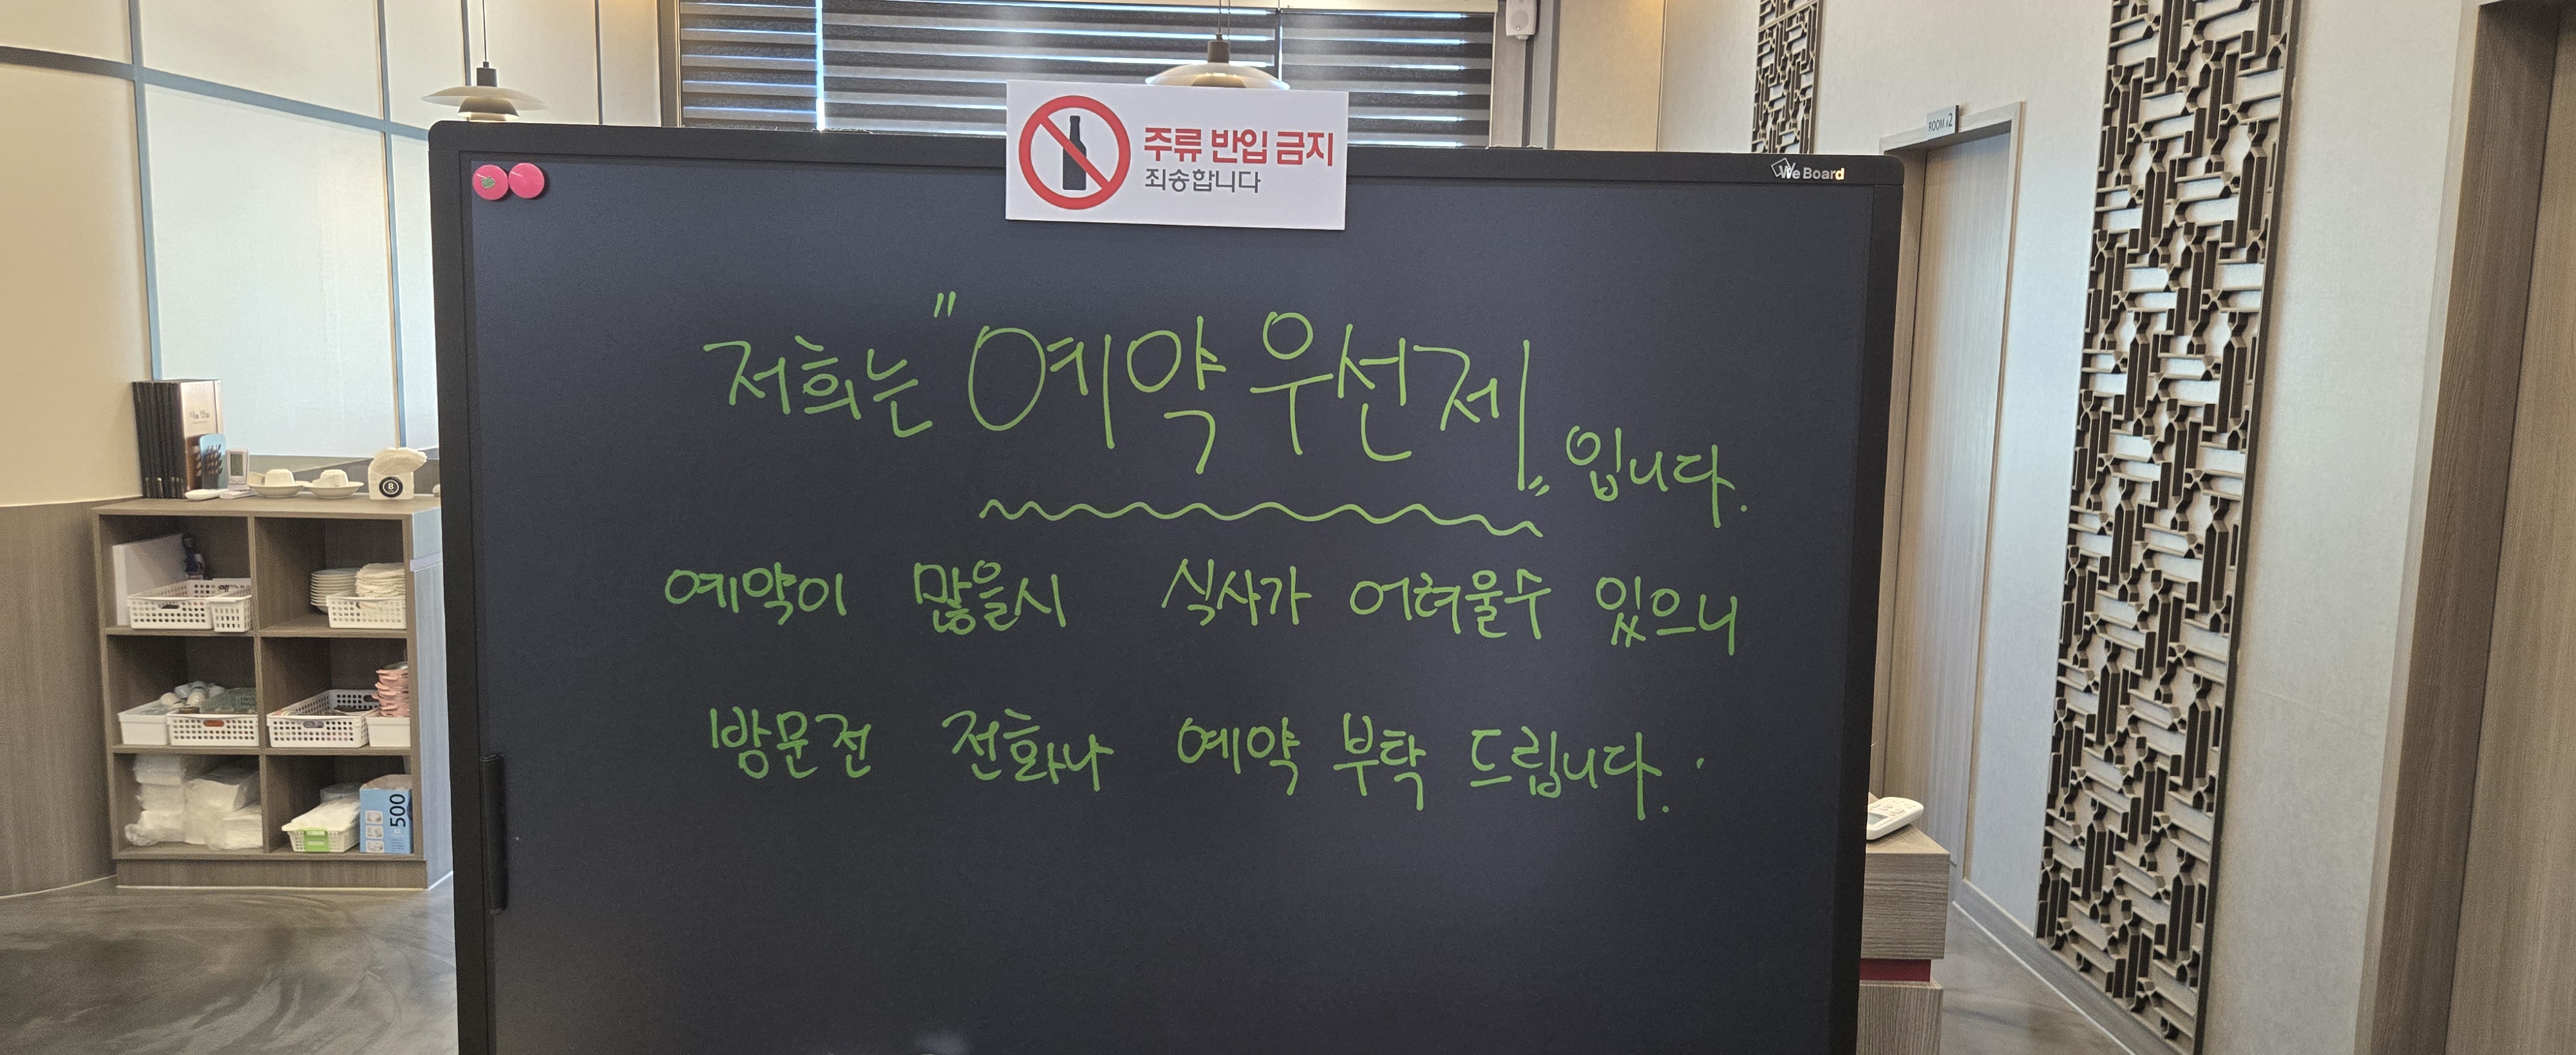 주류 반입 금지
죄송합니다
We Board
ROOM 2
저희는 "예약 우선제" 입니다.
예약이 많을시 식사가 어려울수 있으니
방문전 전화나 예약 부탁 드립니다.
8
500